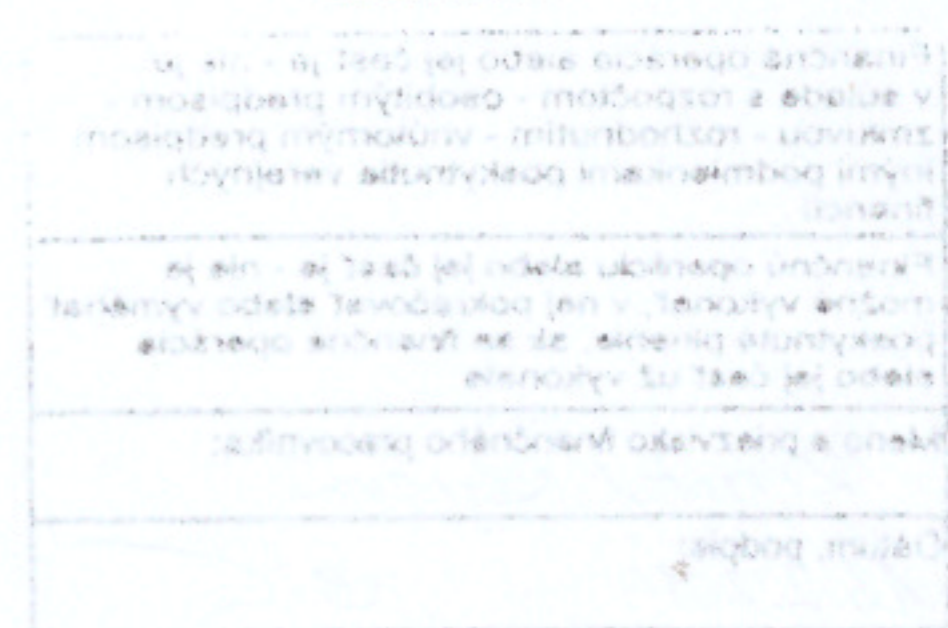 Finančná operácia alebo jej časť je - nie je
v súlade s rozpočtom - osobitým predpisom -
zmluvou - rozhodnutím - vnútorným predpisom
inými podmienkami poskytnutia verejných
financií
Finančnú operáciu alebo jej časť je - nie je
možné vykonať, v nej pokračovať alebo vymáhať
poskytnuté plnenie, ak sa finančná operácia
alebo jej časť už vykonala
Meno a priezvisko finančného pracovníka:
Dátum, podpis: